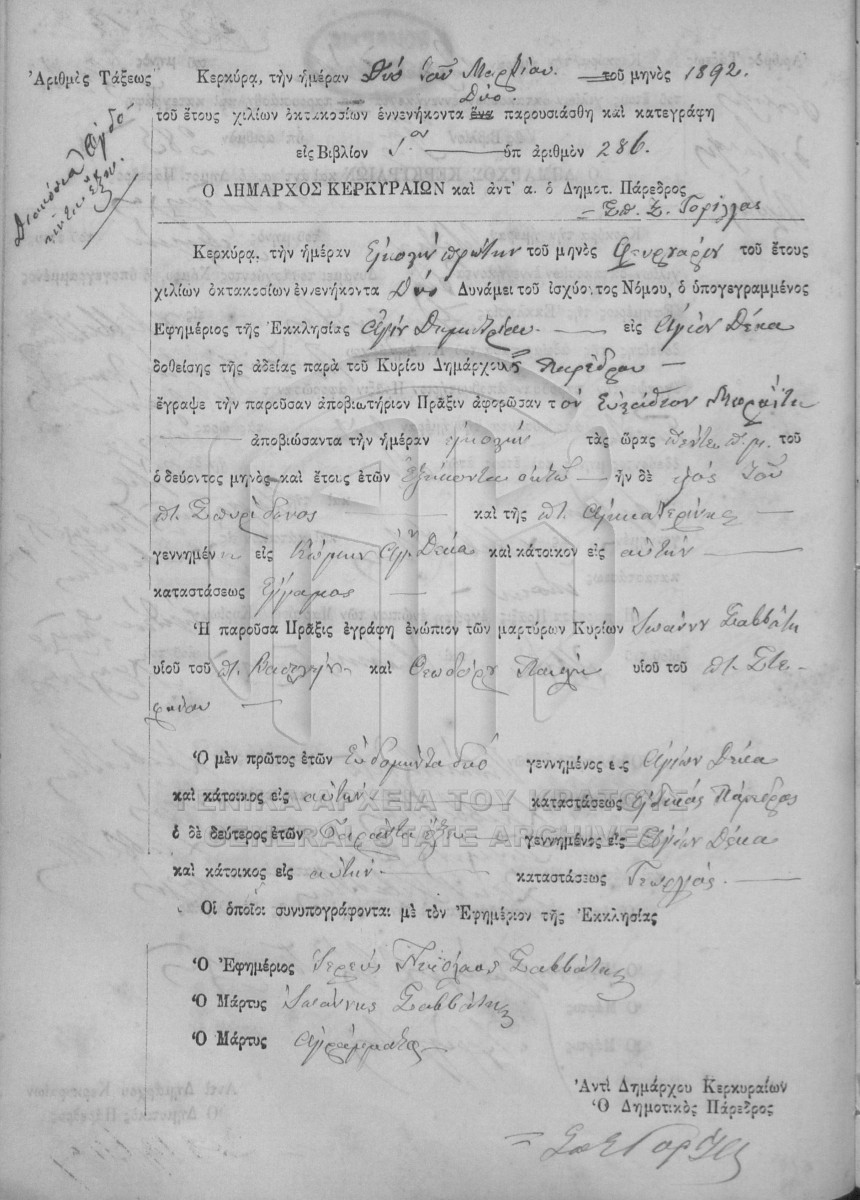 Ἀριθμὸς Τάξεως
Διακόσια Ὀγδο
ήντα ἕξ
Κερκύρᾳ, τὴν ἡμέραν Δύο τοῦ Μαρτίου τοῦ μηνὸς 1892.
Δύο
τοῦ ἔτους χιλίων ὀκτακοσίων ἐννενήκοντα ἕνα παρουσιάσθη καὶ κατεγράφη
εἰς Βιβλίον 1ον ὑπ ἀριθμὸν 286.
Ο ΔΗΜΑΡΧΟΣ ΚΕΡΚΥΡΑΙΩΝ καὶ ἀντ' α. ὁ Δημοτ. Πάρεδρος
Σπ. Σ. Γορίλλας
Κερκύρᾳ, τὴν ἡμέραν εἰκοστὴν πρώτην τοῦ μηνὸς Φευρουαρίου τοῦ ἔτους
χιλίων ὀκτακοσίων ἐννενήκοντα Δύο Δυνάμει τοῦ ἰσχύοντος Νόμου, ὁ ὑπογεγραμμένος
Ἐφημέριος τῆς Ἐκκλησίας Ἁγίου Δημητρίου εἰς Ἁγίου Δέκα
δοθείσης τῆς ἀδείας παρὰ τοῦ Κυρίου Δημάρχου Παρέδρου
ἔγραψε τὴν παροῦσαν ἀποβιωτήριον Πρᾶξιν ἀφορῶσαν τὸν
ἀποβιώσαντα τὴν ἡμέραν εἰκοστὴν τὰς ὥρας πέντε π.μ. τοῦ
ὁδεύοντος μηνὸς καὶ ἔτους ἐτῶν Ἑξήκοντα ὀκτὼ ἦν δὲ υἱὸς τοῦ
πτ. Σπυρίδωνος καὶ τῆς πτ. Αἰκατερίνης
γεννημένη εἰς Κώμην Ἁγ. Δέκα καὶ κάτοικον εἰς αὐτὴν
καταστάσεως ἔγγαμος
Ἡ παροῦσα Πρᾶξις ἐγράφη ἐνώπιον τῶν μαρτύρων Κυρίων Ἰωάννου Σαββάτη
υἱοῦ τοῦ πτ. Βασιλείου καὶ Θεοδώρου Παυλῆ υἱοῦ τοῦ πτ. Στε-
φάνου
Ὁ μὲν πρῶτος ἐτῶν Ἑβδομήντα δύο γεννημένος εἰς Ἁγίου Δέκα
καὶ κάτοικος εἰς αὐτὴν καταστάσεως Εἰδικὸς Πάρεδρος
ὁ δὲ δεύτερος ἐτῶν Σαράντα ἕξη γεννημένος εἰς Ἁγίου Δέκα
καὶ κάτοικος εἰς αὐτὴν καταστάσεως Γεωργὸς
Οἱ ὁποῖοι συνυπογράφονται μὲ τὸν Ἐφημέριον τῆς Ἐκκλησίας
Ὁ Ἐφημέριος Ἱερεὺς Νικόλαος Σαββάτης
Ὁ Μάρτυς Ἰωάννης Σαββάτης
Ὁ Μάρτυς Ἀγράμματος
Ἀντὶ Δημάρχου Κερκυραίων
Ὁ Δημοτικὸς Πάρεδρος
Σπ Σ Γορίλλας
ΓΕΝΙΚΑ ΑΡΧΕΙΑ ΤΟΥ ΚΡΑΤΟΥΣ
GENERAL STATE ARCHIVES